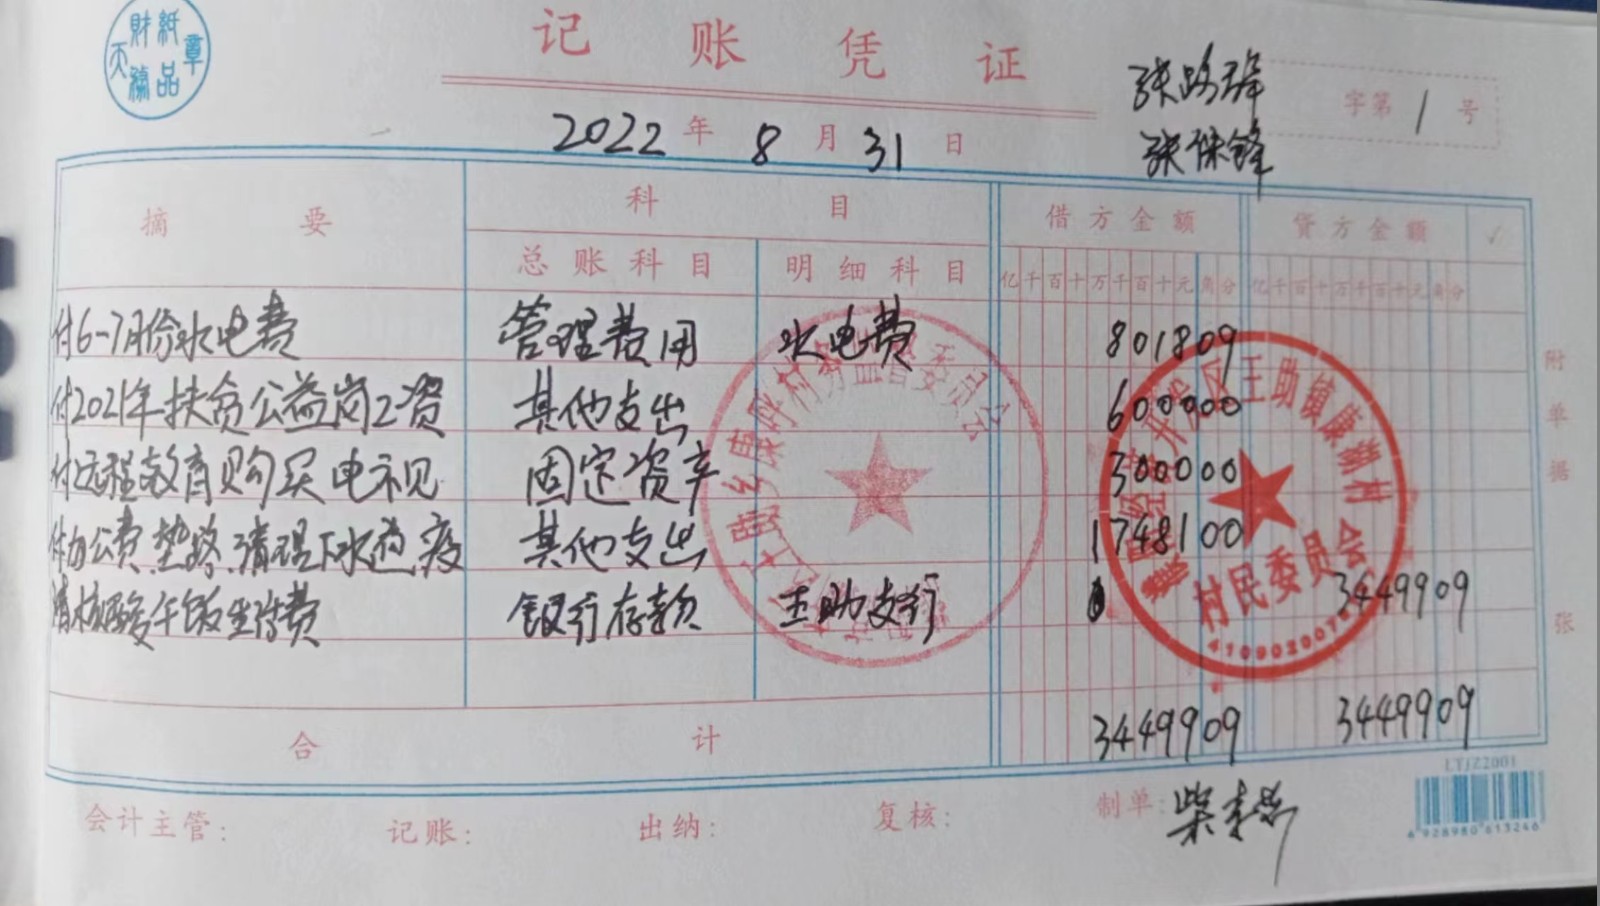 天福 財紙品章
记账凭证
张路锋
字第 1 号
2022 年 8 月 31 日
张保锋
摘要 科目 借方金额 贷方金额 √
总账科目 明细科目 亿千百十万千百十元角分 亿千百十万千百十元角分
付6-7月份水电费 管理费用 水电费 801809
付2021年扶贫公益岗工资 其他支出 600000
付远程教育购买电视 固定资产 300000
付办公费、垫路、清理下水道、疫 其他支出 1748100
情核酸午饭宣传费 银行存款 王助支行 3449909
合计 3449909 3449909
附单据 张
王助镇康湖村
村民委员会
村务监督委员会
会计主管: 记账: 出纳: 复核: 制单:
LTJZ2001
6928980613246